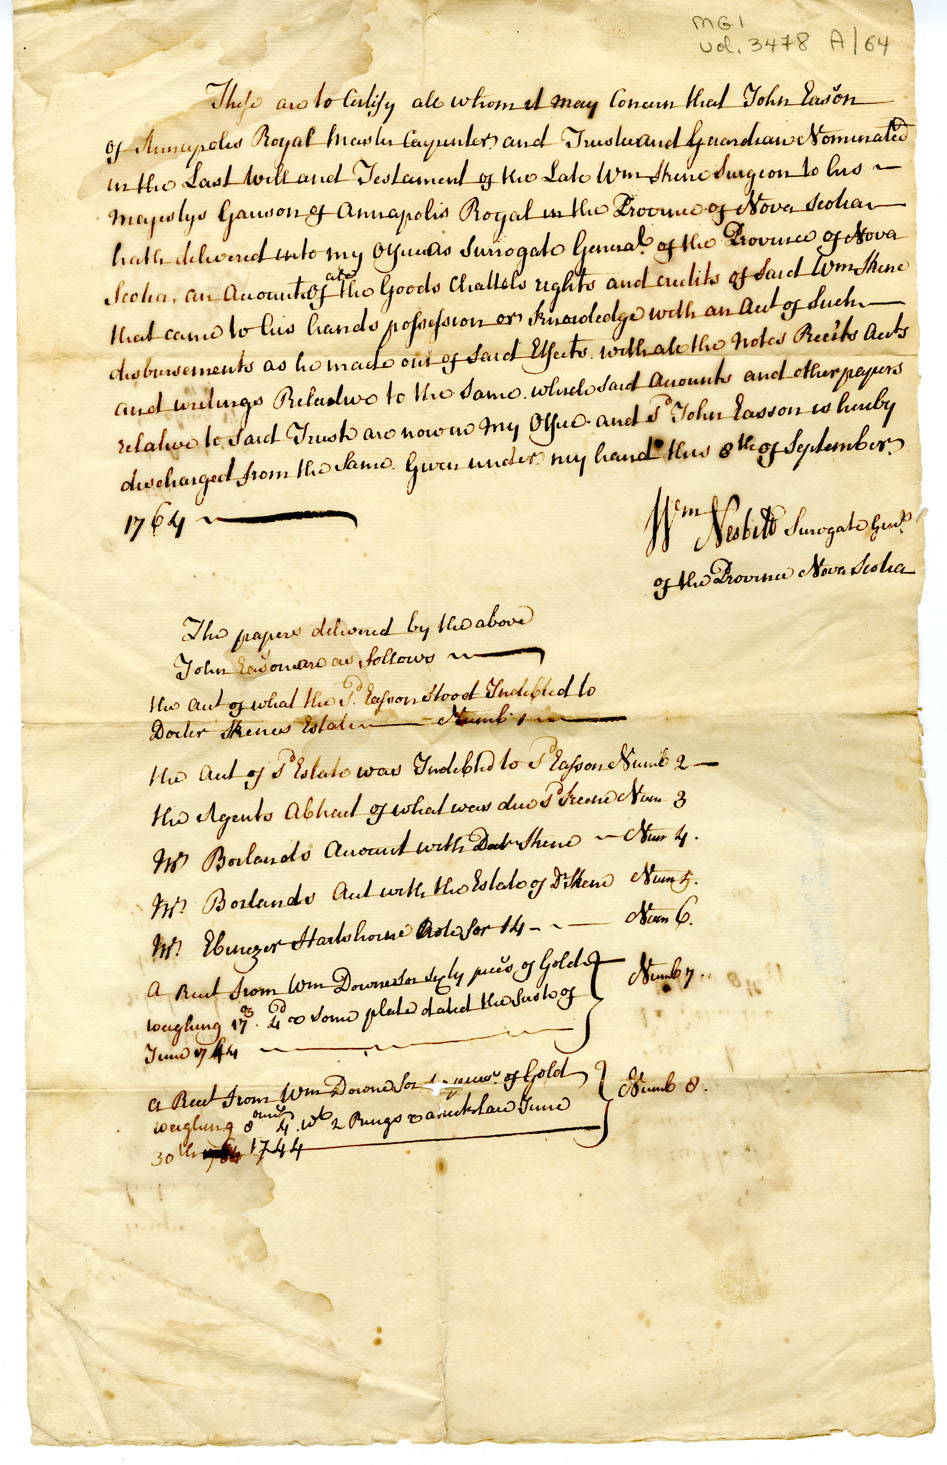 MG1
Vol. 3478 A/64
These are to Certify all whom it may Concern that John Eason
of Annapolis Royal Master Carpenter and Trustee and Guardian Nominated
in the Last Will and Testament of the Late Wm Skene Surgeon to his
Majestys Garison of Annapolis Royal in the Province of Nova Scotia
hath delivered into my Office as Surrogate General of the Province of Nova
Scotia, an Account of all the Goods Chattels rights and credits of said Wm Skene
that came to his hands possession or knowledge with an Act of Such
disbursements as he made out of said Effects. with all the Notes Receits Acts
and writings Relative to the same. which said Acounts and other papers
relative to said Trust are now in My Office. and Sd John Easson is hereby
discharged from the same. Given under my hand this 8th of September
1764
Wm Nesbitt Surrogate Genl
of the Province Nova Scotia
The papers delivered by the above
John Eason are as follows
the Act of what the Sd. Easson stood Indebted to
Docter Skenes Estate Numb 1
the Act of Sd Estate was Indebted to Sd Easson Numb 2
the Agents Abstract of what was due Sd Skene Num 3
Mr Borlands Acount with Doctr Skene Num 4.
Mr Borlands Act with the Estate of Dr Skene Num 5.
Mr Ebenezer Hartshorne Note for 14 Num 6.
A Rect from Wm Downe for sixty pices of Gold
weighing 17 oz. 4d & some plate dated the first of
June 1744
Numb 7.
A Rect from Wm Downe for of Gold
weighing 8 ounces 4 wt 2 Rings & a necklace June
30th 1744
Numb 8.